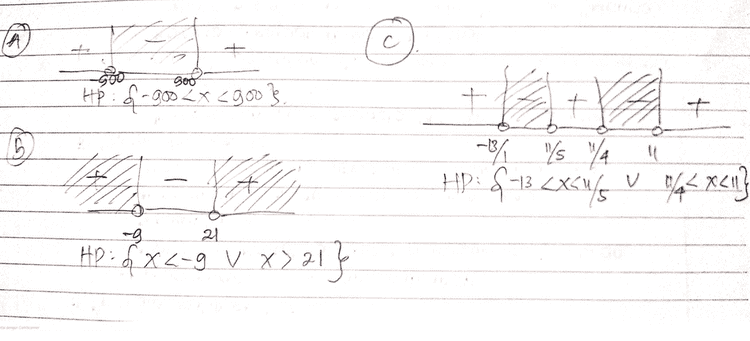 A
+ − +
-900 900
HP: { -900 < x < 900 }.
B
+ − +
-9 21
HP: { x < -9 V x > 21 }
C
+ − + − +
-13/1 11/5 11/4 11
HP: { -13 < x < 11/5 V 11/4 < x < 11 }